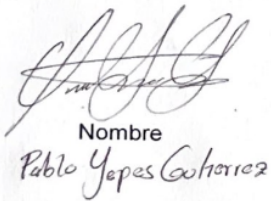 Nombre
Pablo Yepes Gutierrez